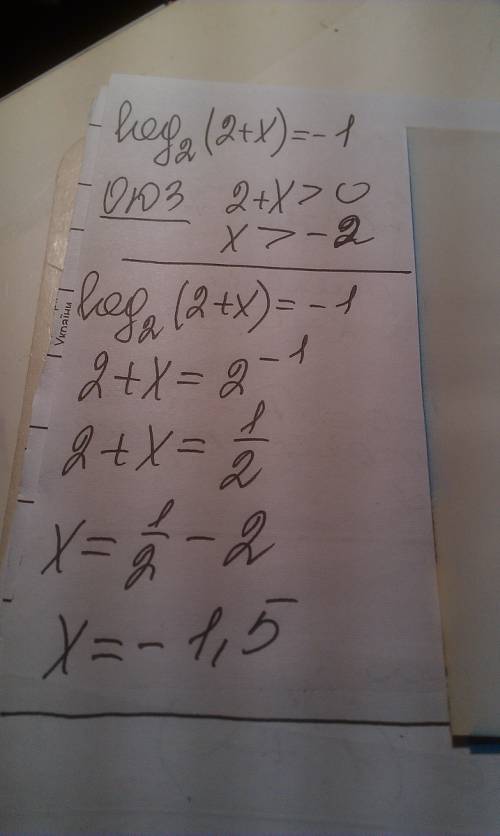 log₂(2+x)=-1
ОЮЗ 2+x>0
x>-2
log₂(2+x)=-1
2+x=2⁻¹
2+x=1/2
x=1/2-2
x=-1,5
України